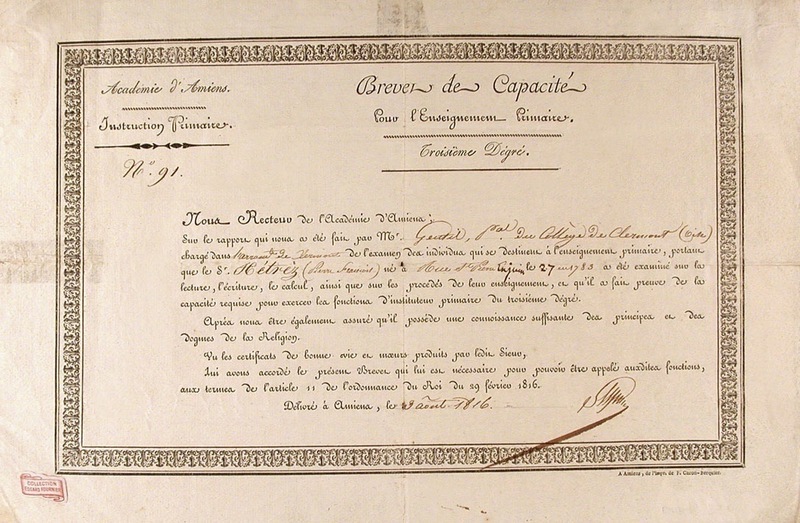 Académie d'Amiens.
Instruction Primaire.
N.º 91.
Brevet de Capacité
Pour l'Enseignement Primaire.
Troisième Dégré.
Nous Recteur de l'Académie d'Amiens;
Sur le rapport qui nous a été fait par M.r Gentil, P.al du Collège de Clermont (Oise)
chargé dans de Clermont de l'examen des individus qui se destinent à l'enseignement primaire, portant
que le S.r (Pierre François) né à Rue St le 27 1783 a été examiné sur la
lecture, l'écriture, le calcul, ainsi que sur les procédés de leur enseignement, et qu'il a fait preuve de la
capacité requise pour exercer les fonctions d'instituteur primaire du troisième dégré.
Après nous être également assuré qu'il possède une connoissance suffisante des principes et des
dogmes de la Religion.
Vu les certificats de bonne vie et mœurs produits par ledit Sieur,
Lui avons accordé le présent Brevet qui lui est nécessaire pour pouvoir être appelé auxdites fonctions,
aux termes de l'article 11 de l'ordonnance du Roi du 29 février 1816.
Délivré à Amiens, le 3 août 1816.
A Amiens, de l'impr. de F. Caron-Berquier.
COLLECTION